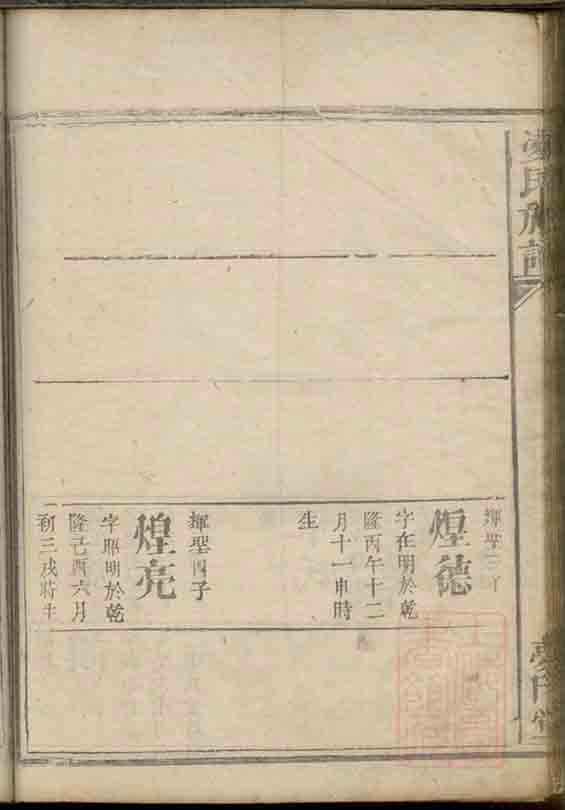 氏族譜
輝聖三子
煌德
字在明於乾
隆丙午十二
月十一申時
生
輝聖四子
煌亮
字照明於乾
隆己酉六月
初三戌時生